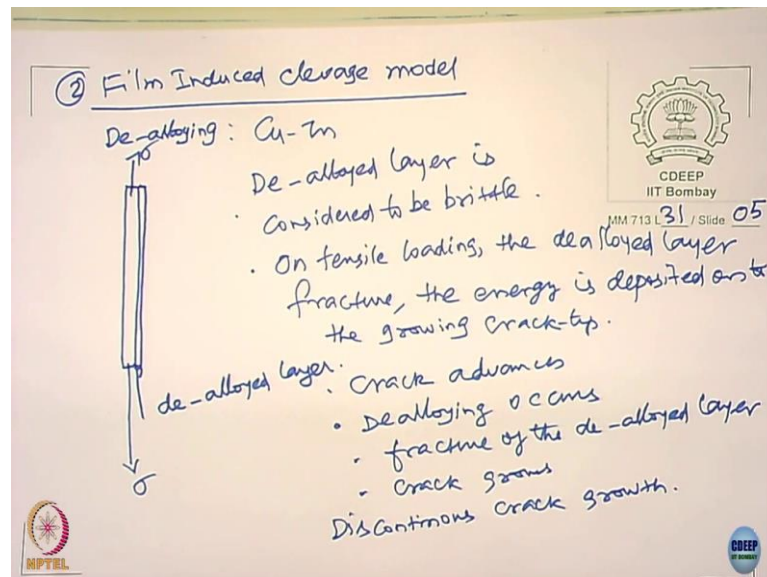 ② Film Induced clevage model
De-alloying : Cu-Zn
σ
De-alloyed layer is
considered to be brittle.
· On tensile loading, the dealloyed layer
fracture, the energy is deposited onto
the growing crack-tip.
de-alloyed layer.
· Crack advances
· Dealloying occurs
· fracture of the de-alloyed layer
· Crack grows
Discontinous crack growth.
σ
CDEEP
IIT Bombay
MM 713 L 31 / Slide 05
NPTEL
CDEEP
IIT BOMBAY